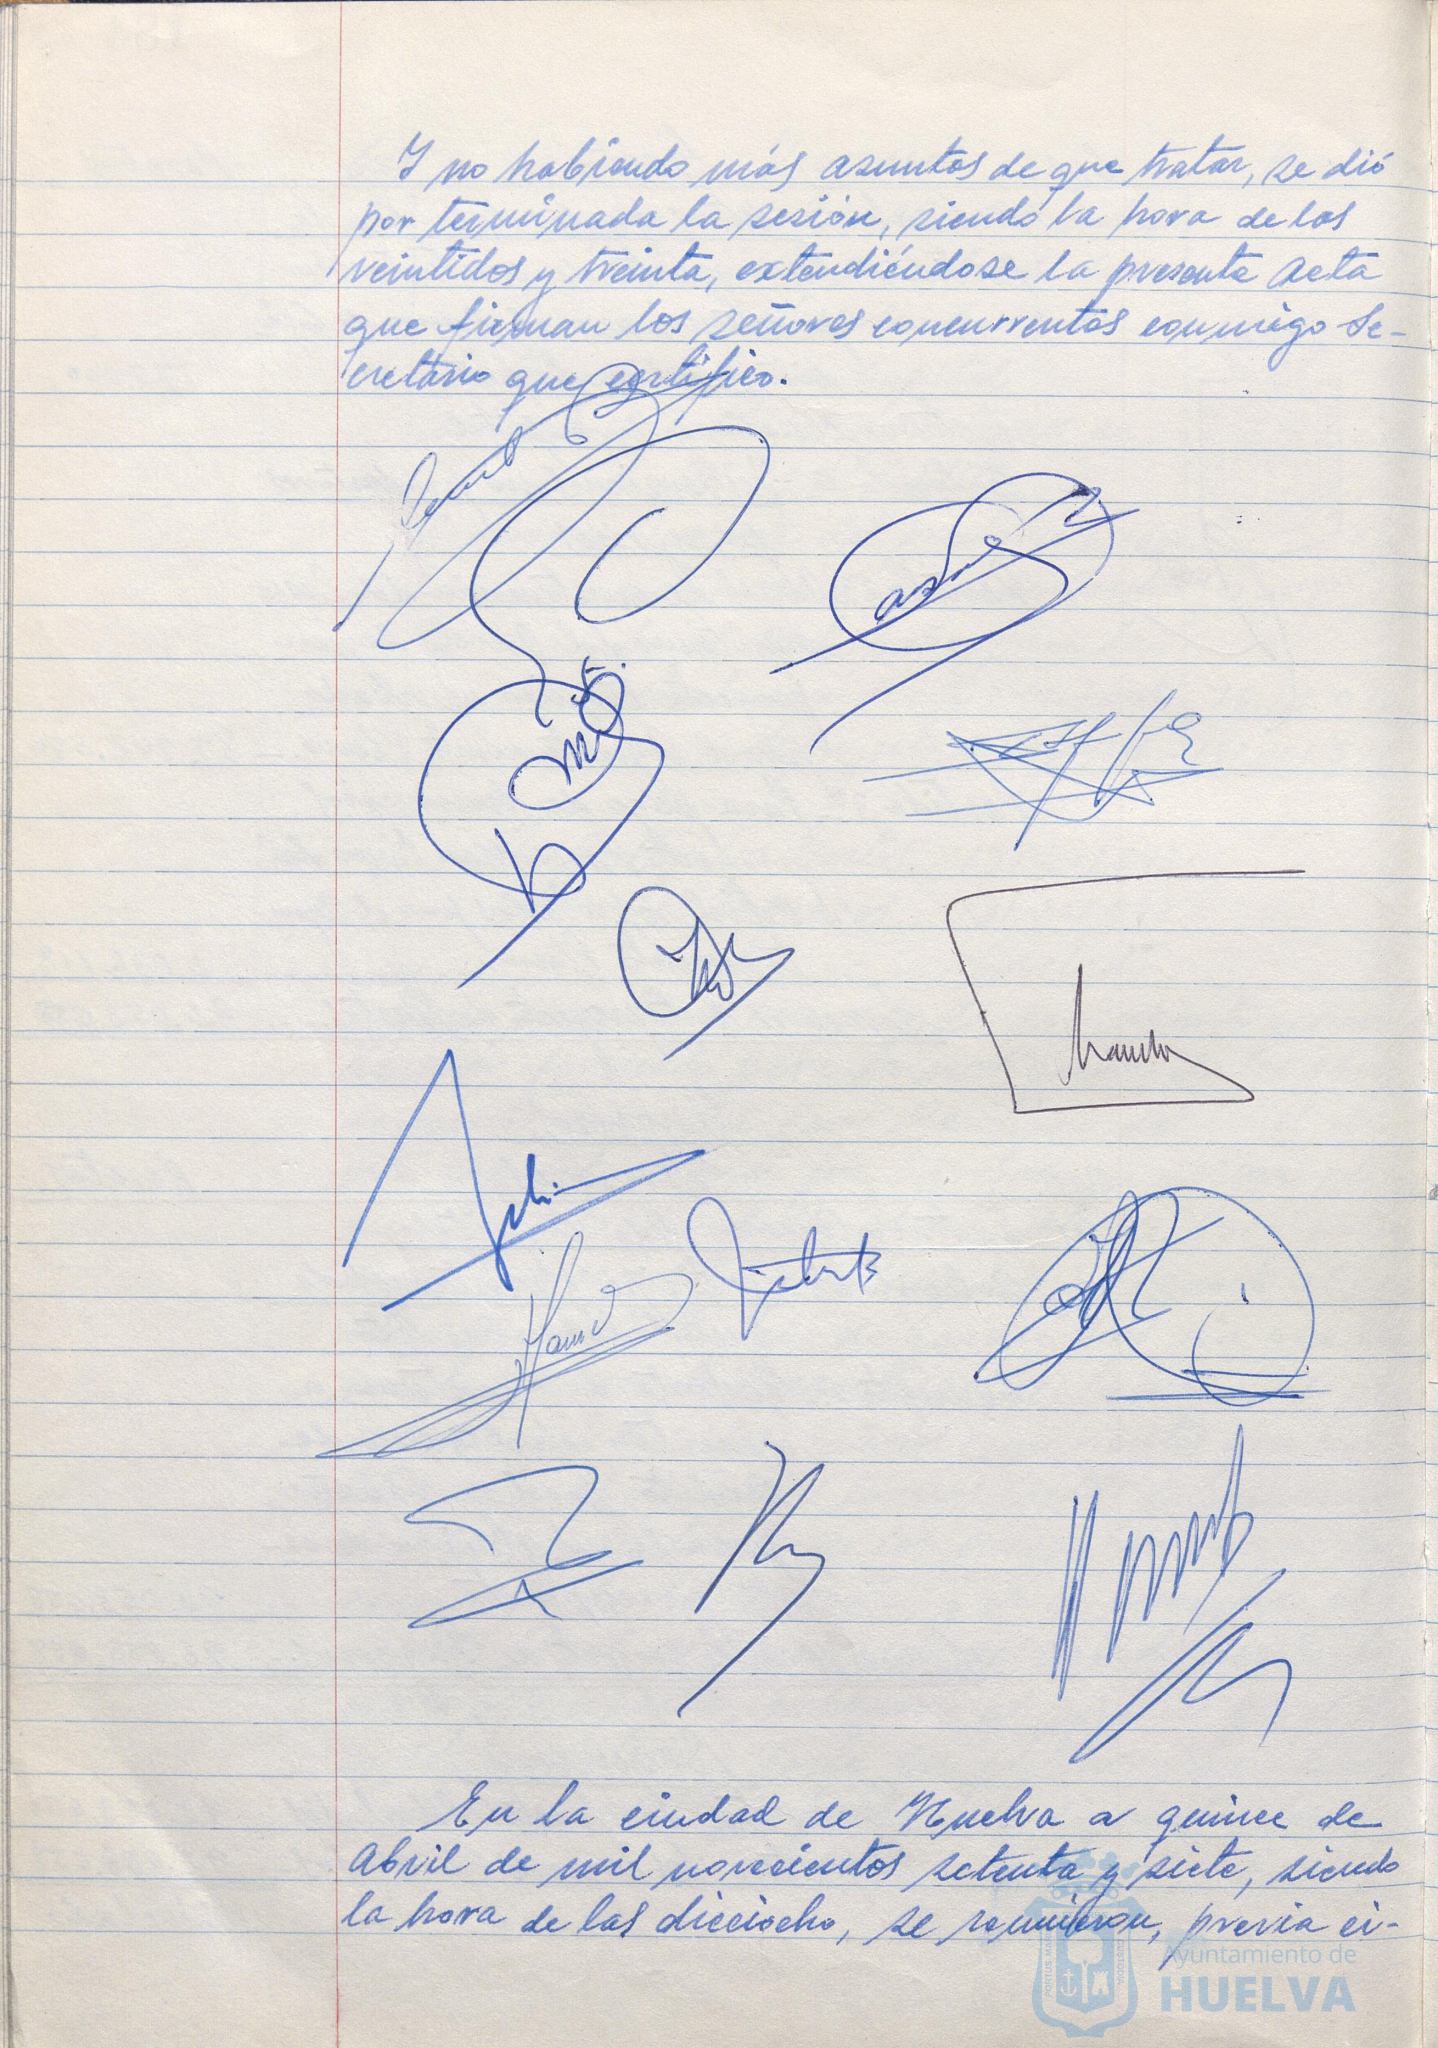 Y no habiendo más asuntos de que tratar, se dió
por terminada la sesión, siendo la hora de las
veintidos y treinta, extendiéndose la presente Acta
que firman los señores concurrentes conmigo Se-
cretario que certifico.
En la ciudad de Huelva a quince de
Abril de mil novecientos setenta y siete, siendo
la hora de las dieciocho, se reunieron, previa ci-
Ayuntamiento de
HUELVA